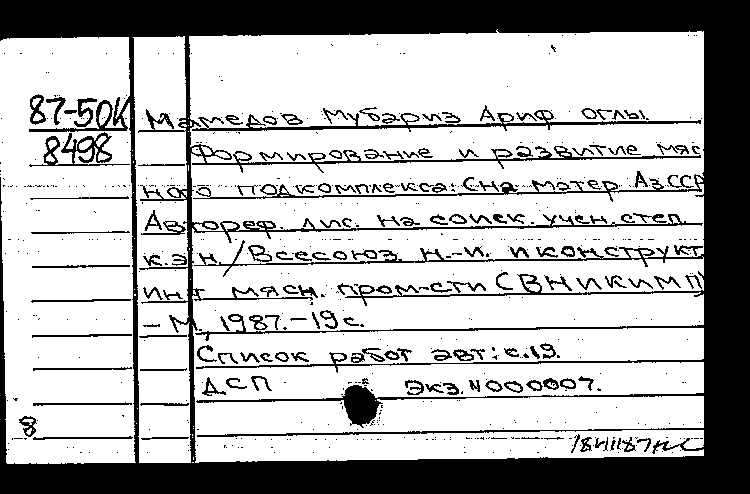 87-50К Мамедов Мубариз Ариф оглы.
8498 Формирование и развитие мяс-
ного подкомплекса: (на матер АзССР
Автореф. дис. на соиск. учен. степ.
к.э.н. / Всесоюз. н.-и. и конструкт.
ин-т мясн. пром-сти (ВНИКИМП)
– М., 1987.–19 с.
Список работ авт: с.19.
ДСП Экз. N000007.
8